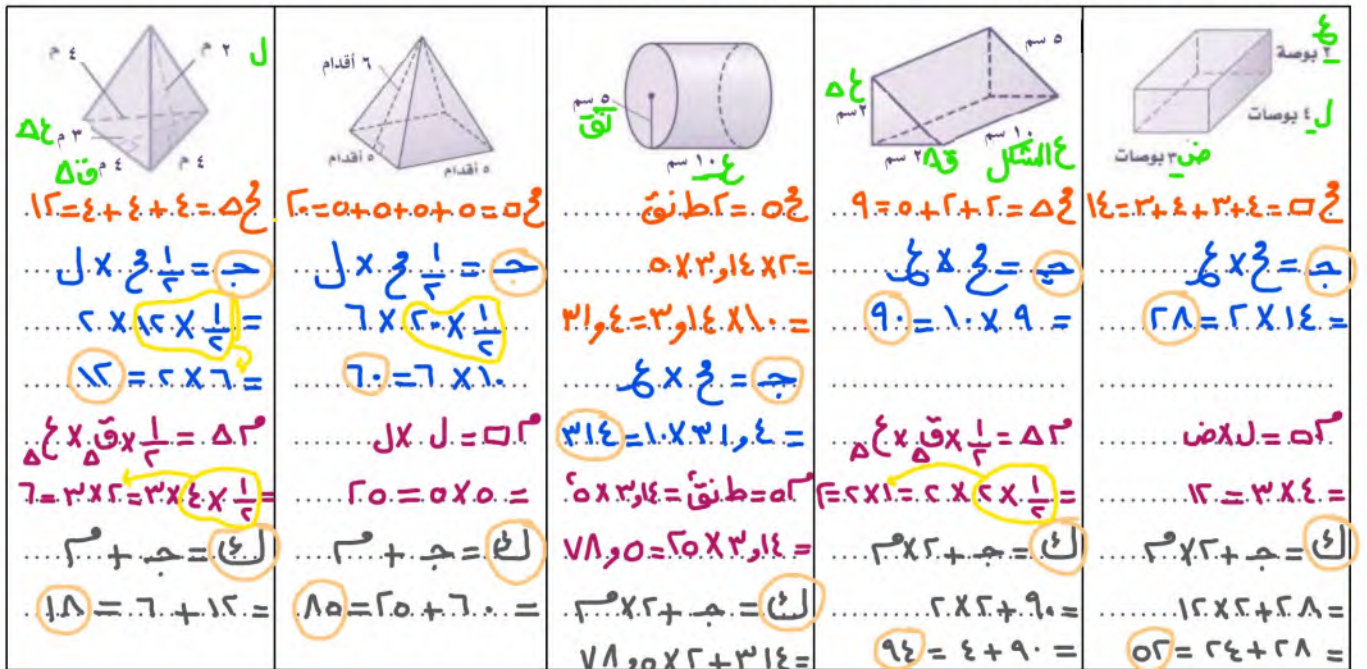 ع
٢ بوصة
ل ٤ بوصات
ض ٣ بوصات
ح□ = ٤ + ٣ + ٤ + ٣ = ١٤
جـ = ح × ع
= ١٤ × ٢ = ٢٨
م□ = ل × ض
= ٤ × ٣ = ١٢
ك = جـ + ٢ × م
= ٢٨ + ٢ × ١٢
= ٢٨ + ٢٤ = ٥٢
٥ سم
ع∆
٢ سم
١٠ سم
ع الشكل
ق∆ ٢ سم
ح∆ = ٢ + ٢ + ٥ = ٩
جـ = ح × ع
= ٩ × ١٠ = ٩٠
م∆ = ١/٢ × ق∆ × ع∆
= ١/٢ × ٢ × ٢ = ١ × ٢ = ٢
ك = جـ + ٢ × م
= ٩٠ + ٢ × ٢
= ٩٠ + ٤ = ٩٤
٥ سم
نق
ع ١٠ سم
ح○ = ٢ ط نق
= ٢ × ٣,١٤ × ٥
= ١٠ × ٣,١٤ = ٣١,٤
جـ = ح × ع
= ٣١,٤ × ١٠ = ٣١٤
م○ = ط نق٢ = ٣,١٤ × ٥٢
= ٣,١٤ × ٢٥ = ٧٨,٥
ك = جـ + ٢ × م
= ٣١٤ + ٢ × ٧٨,٥
٦ أقدام
٥ أقدام
٥ أقدام
ح□ = ٥ + ٥ + ٥ + ٥ = ٢٠
جـ = ١/٢ ح × ل
١/٢ × ٢٠ × ٦
١٠ × ٦ = ٦٠
م□ = ل × ل
= ٥ × ٥ = ٢٥
ك = جـ + م
= ٦٠ + ٢٥ = ٨٥
ل
٢ م
٤ م
ع∆ ٣ م
ق∆ ٤ م
٤ م
ح∆ = ٤ + ٤ + ٤ = ١٢
جـ = ١/٢ ح × ل
= ١/٢ × ١٢ × ٢
= ٦ × ٢ = ١٢
م∆ = ١/٢ × ق∆ × ع∆
= ١/٢ × ٤ × ٣ = ٢ × ٣ = ٦
ك = جـ + م
= ١٢ + ٦ = ١٨